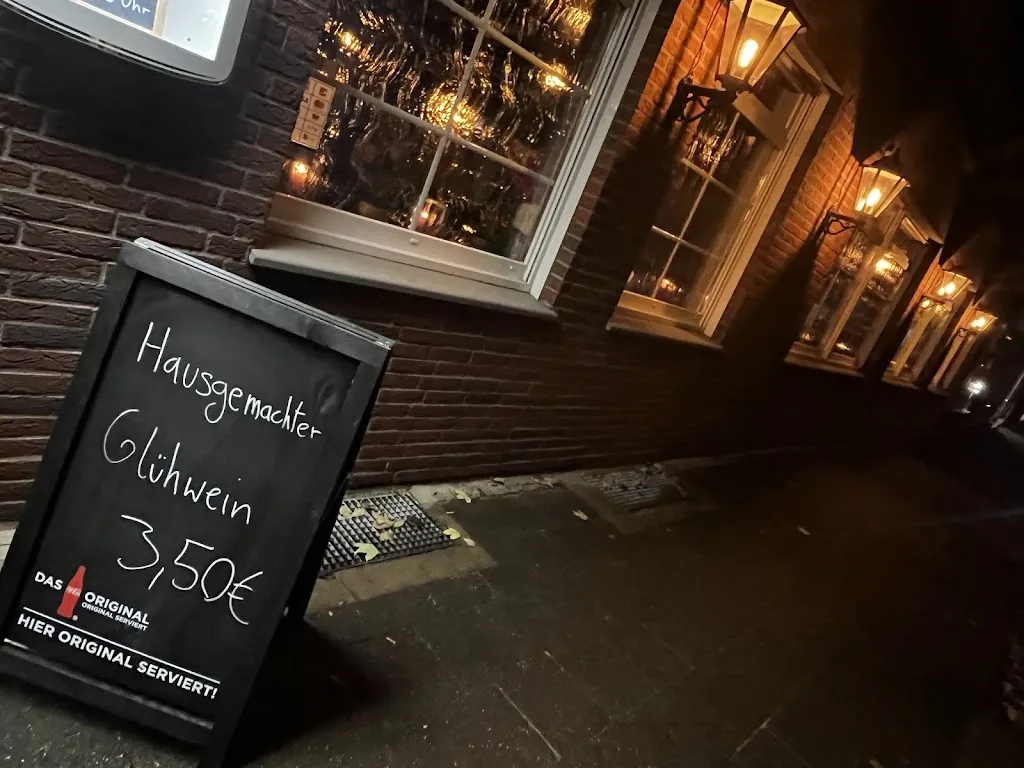 Uhr
Hausgemachter
Glühwein
3,50€
DAS ORIGINAL
ORIGINAL SERVIERT
HIER ORIGINAL SERVIERT!